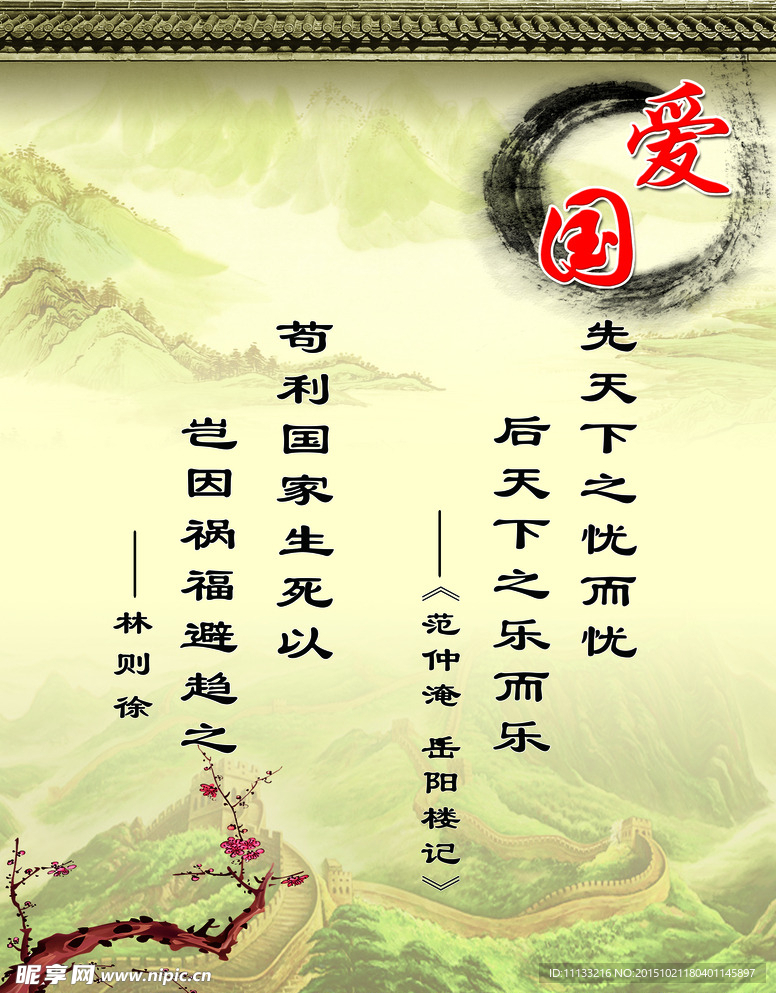 爱国
先天下之忧而忧
后天下之乐而乐
——《范仲淹 岳阳楼记》
苟利国家生死以
岂因祸福避趋之
——林则徐
昵享网 www.nipic.cn
ID:11133216 NO:20151021180401145897